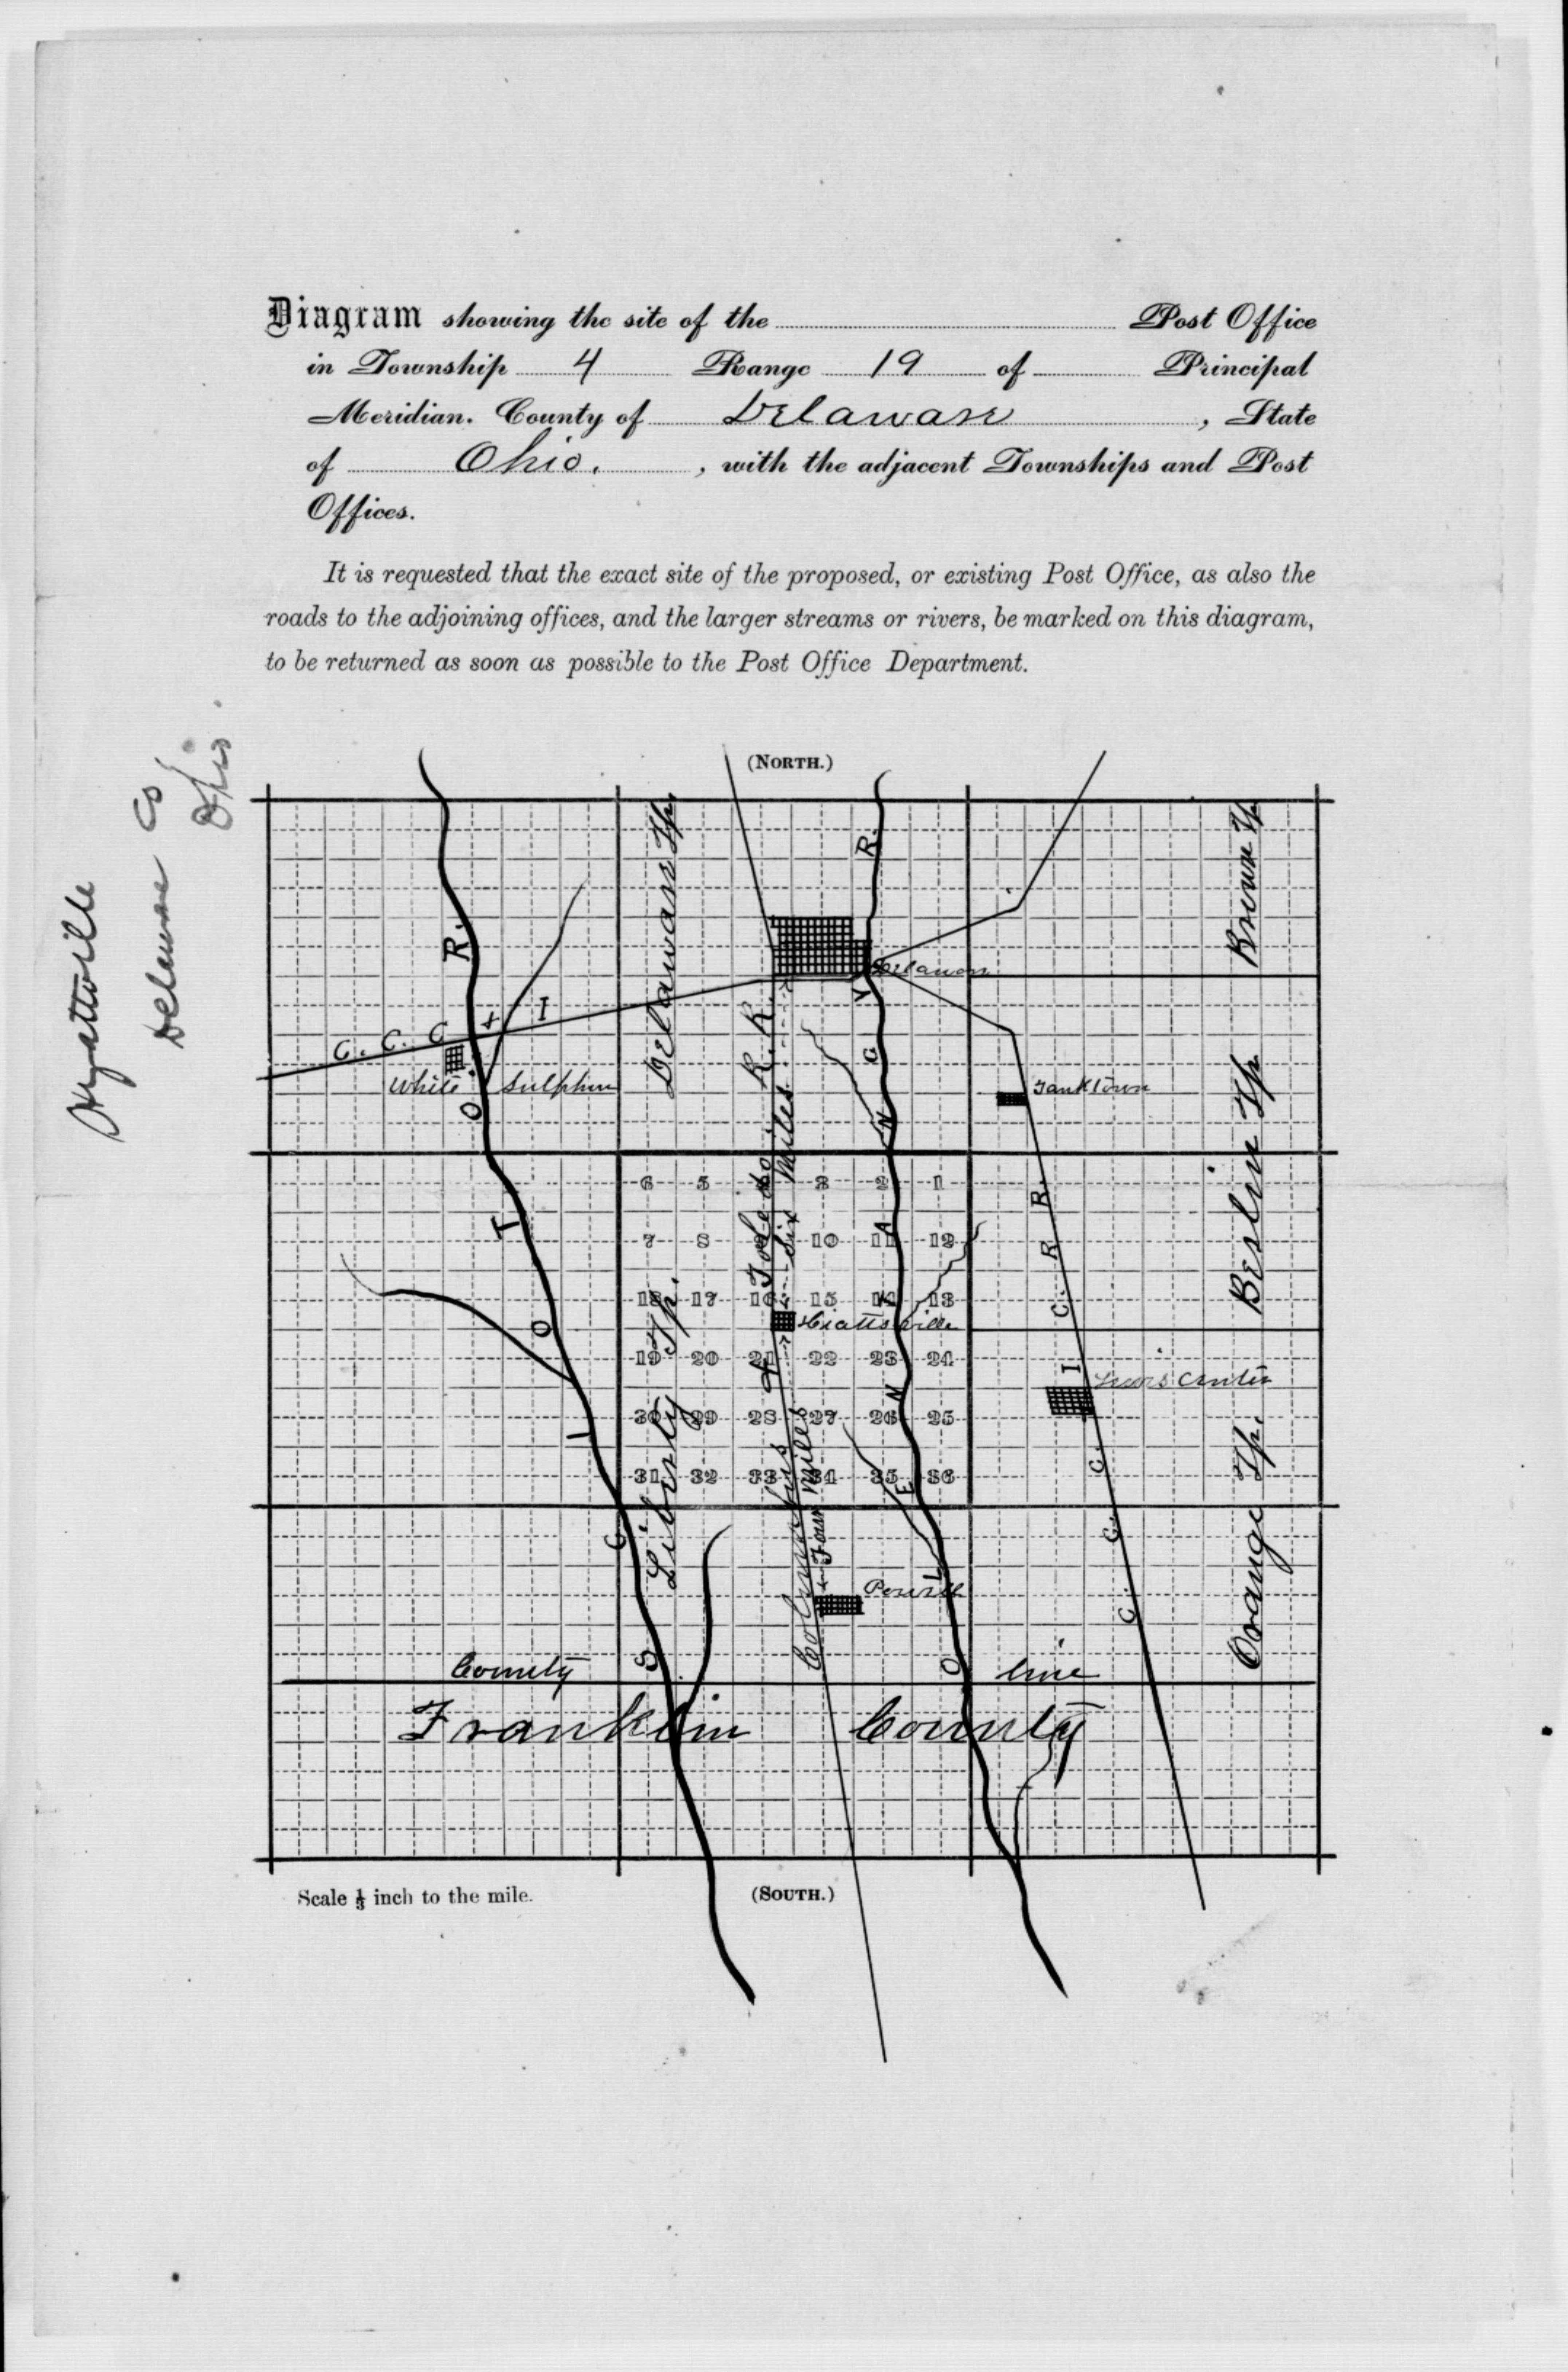 Diagram showing the site of the Post Office
in Township 4 Range 19 of Principal
Meridian. County of Delaware, State
of Ohio., with the adjacent Townships and Post
Offices.
It is requested that the exact site of the proposed, or existing Post Office, as also the
roads to the adjoining offices, and the larger streams or rivers, be marked on this diagram,
to be returned as soon as possible to the Post Office Department.
Hyattville
Delaware Co
Ohio.
(NORTH.)
Delaware Tp.
Brown Tp.
Delaware
C. C. C + I
R. R.
White Sulphur
Tanktown
Berlin Tp.
SCIOTO R.
OLENTANGY R.
6 5 4 3 2 1
7 8 9 10 11 12
18 17 16 15 14 13
Hiattsville
19 20 21 22 23 24
30 29 28 27 26 25
31 32 33 34 35 36
Six Miles
Columbus & Toledo R. R.
Four Miles
Liberty Tp.
C. C. C. I C. R. R.
Lewis Center
Powell
Orange Tp.
County line
Franklin County
Scale ⅓ inch to the mile.
(SOUTH.)